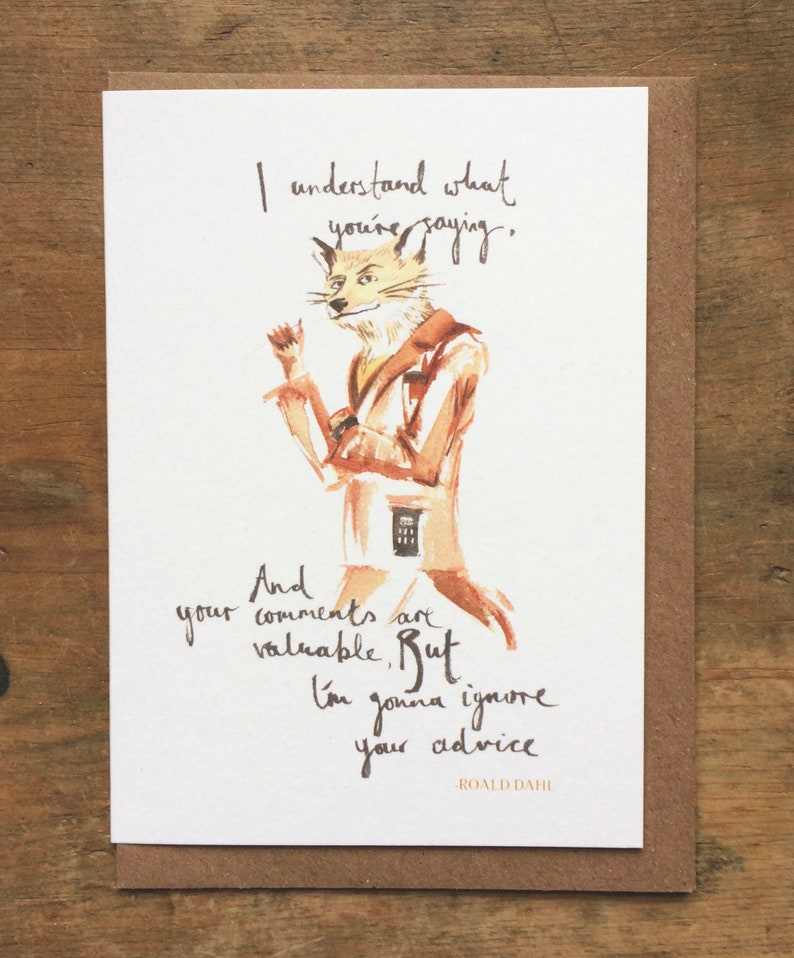 I understand what
you're saying,
And
your comments are
valuable, But
I'm gonna ignore
your advice
-ROALD DAHL